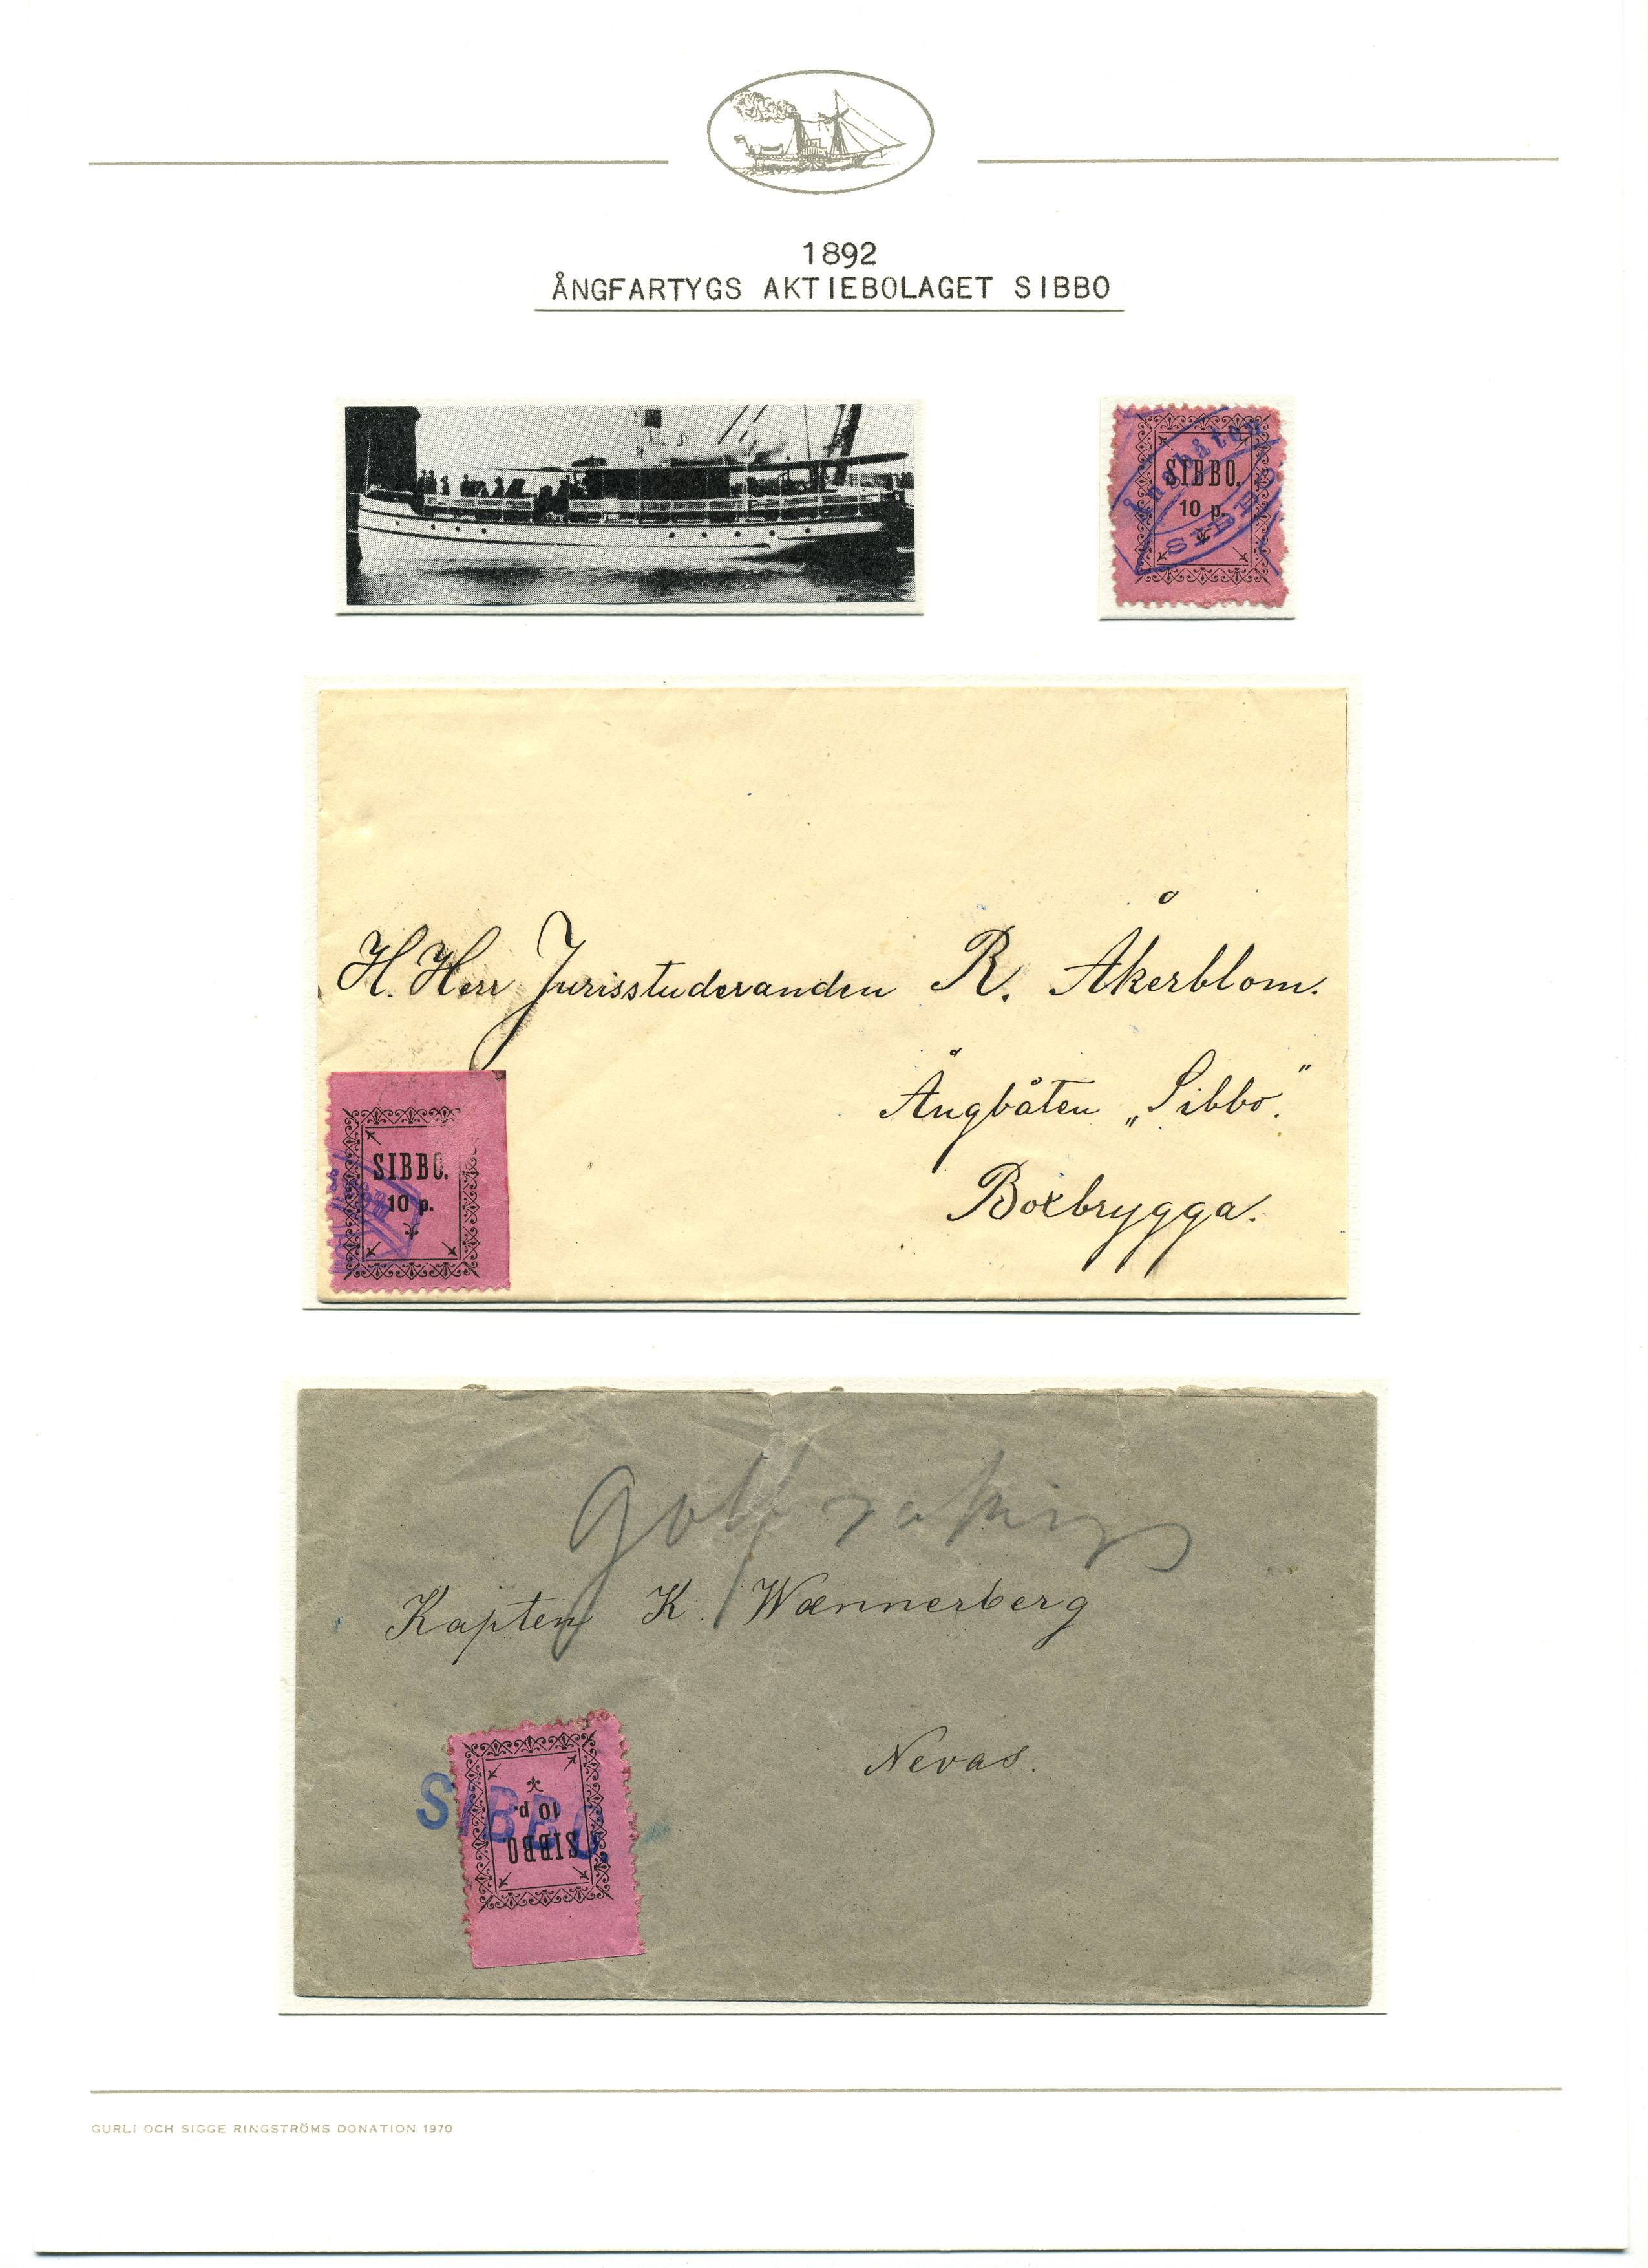 1892
ÅNGFARTYGS AKTIEBOLAGET SIBBO
Ångbåten
SIBBO.
10 p.
SIBBO
H. Herr Jurisstuderanden R. Åkerblom.
Ångbåten „Sibbo."
Boxbrygga.
SIBBO.
10 p.
Kapten K. Wænnerberg
Nevas.
SIBBO.
10 p.
SIBBO
GURLI OCH SIGGE RINGSTRÖMS DONATION 1970